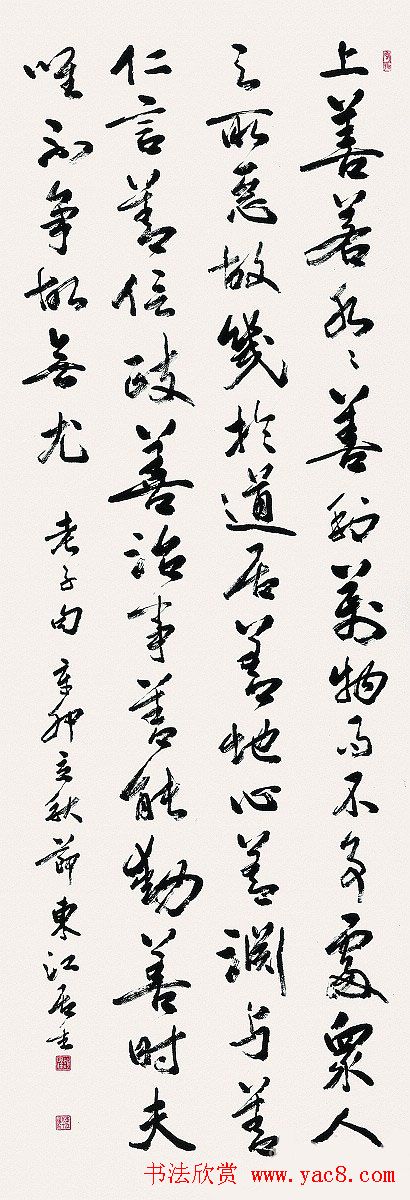 上善若水水善利萬物而不爭處眾人
之所惡故幾於道居善地心善淵与善
仁言善信政善治事善能動善时夫
唯不爭故無尤
老子句 辛卯立秋節東江居士
书法欣赏 www.yac8.com